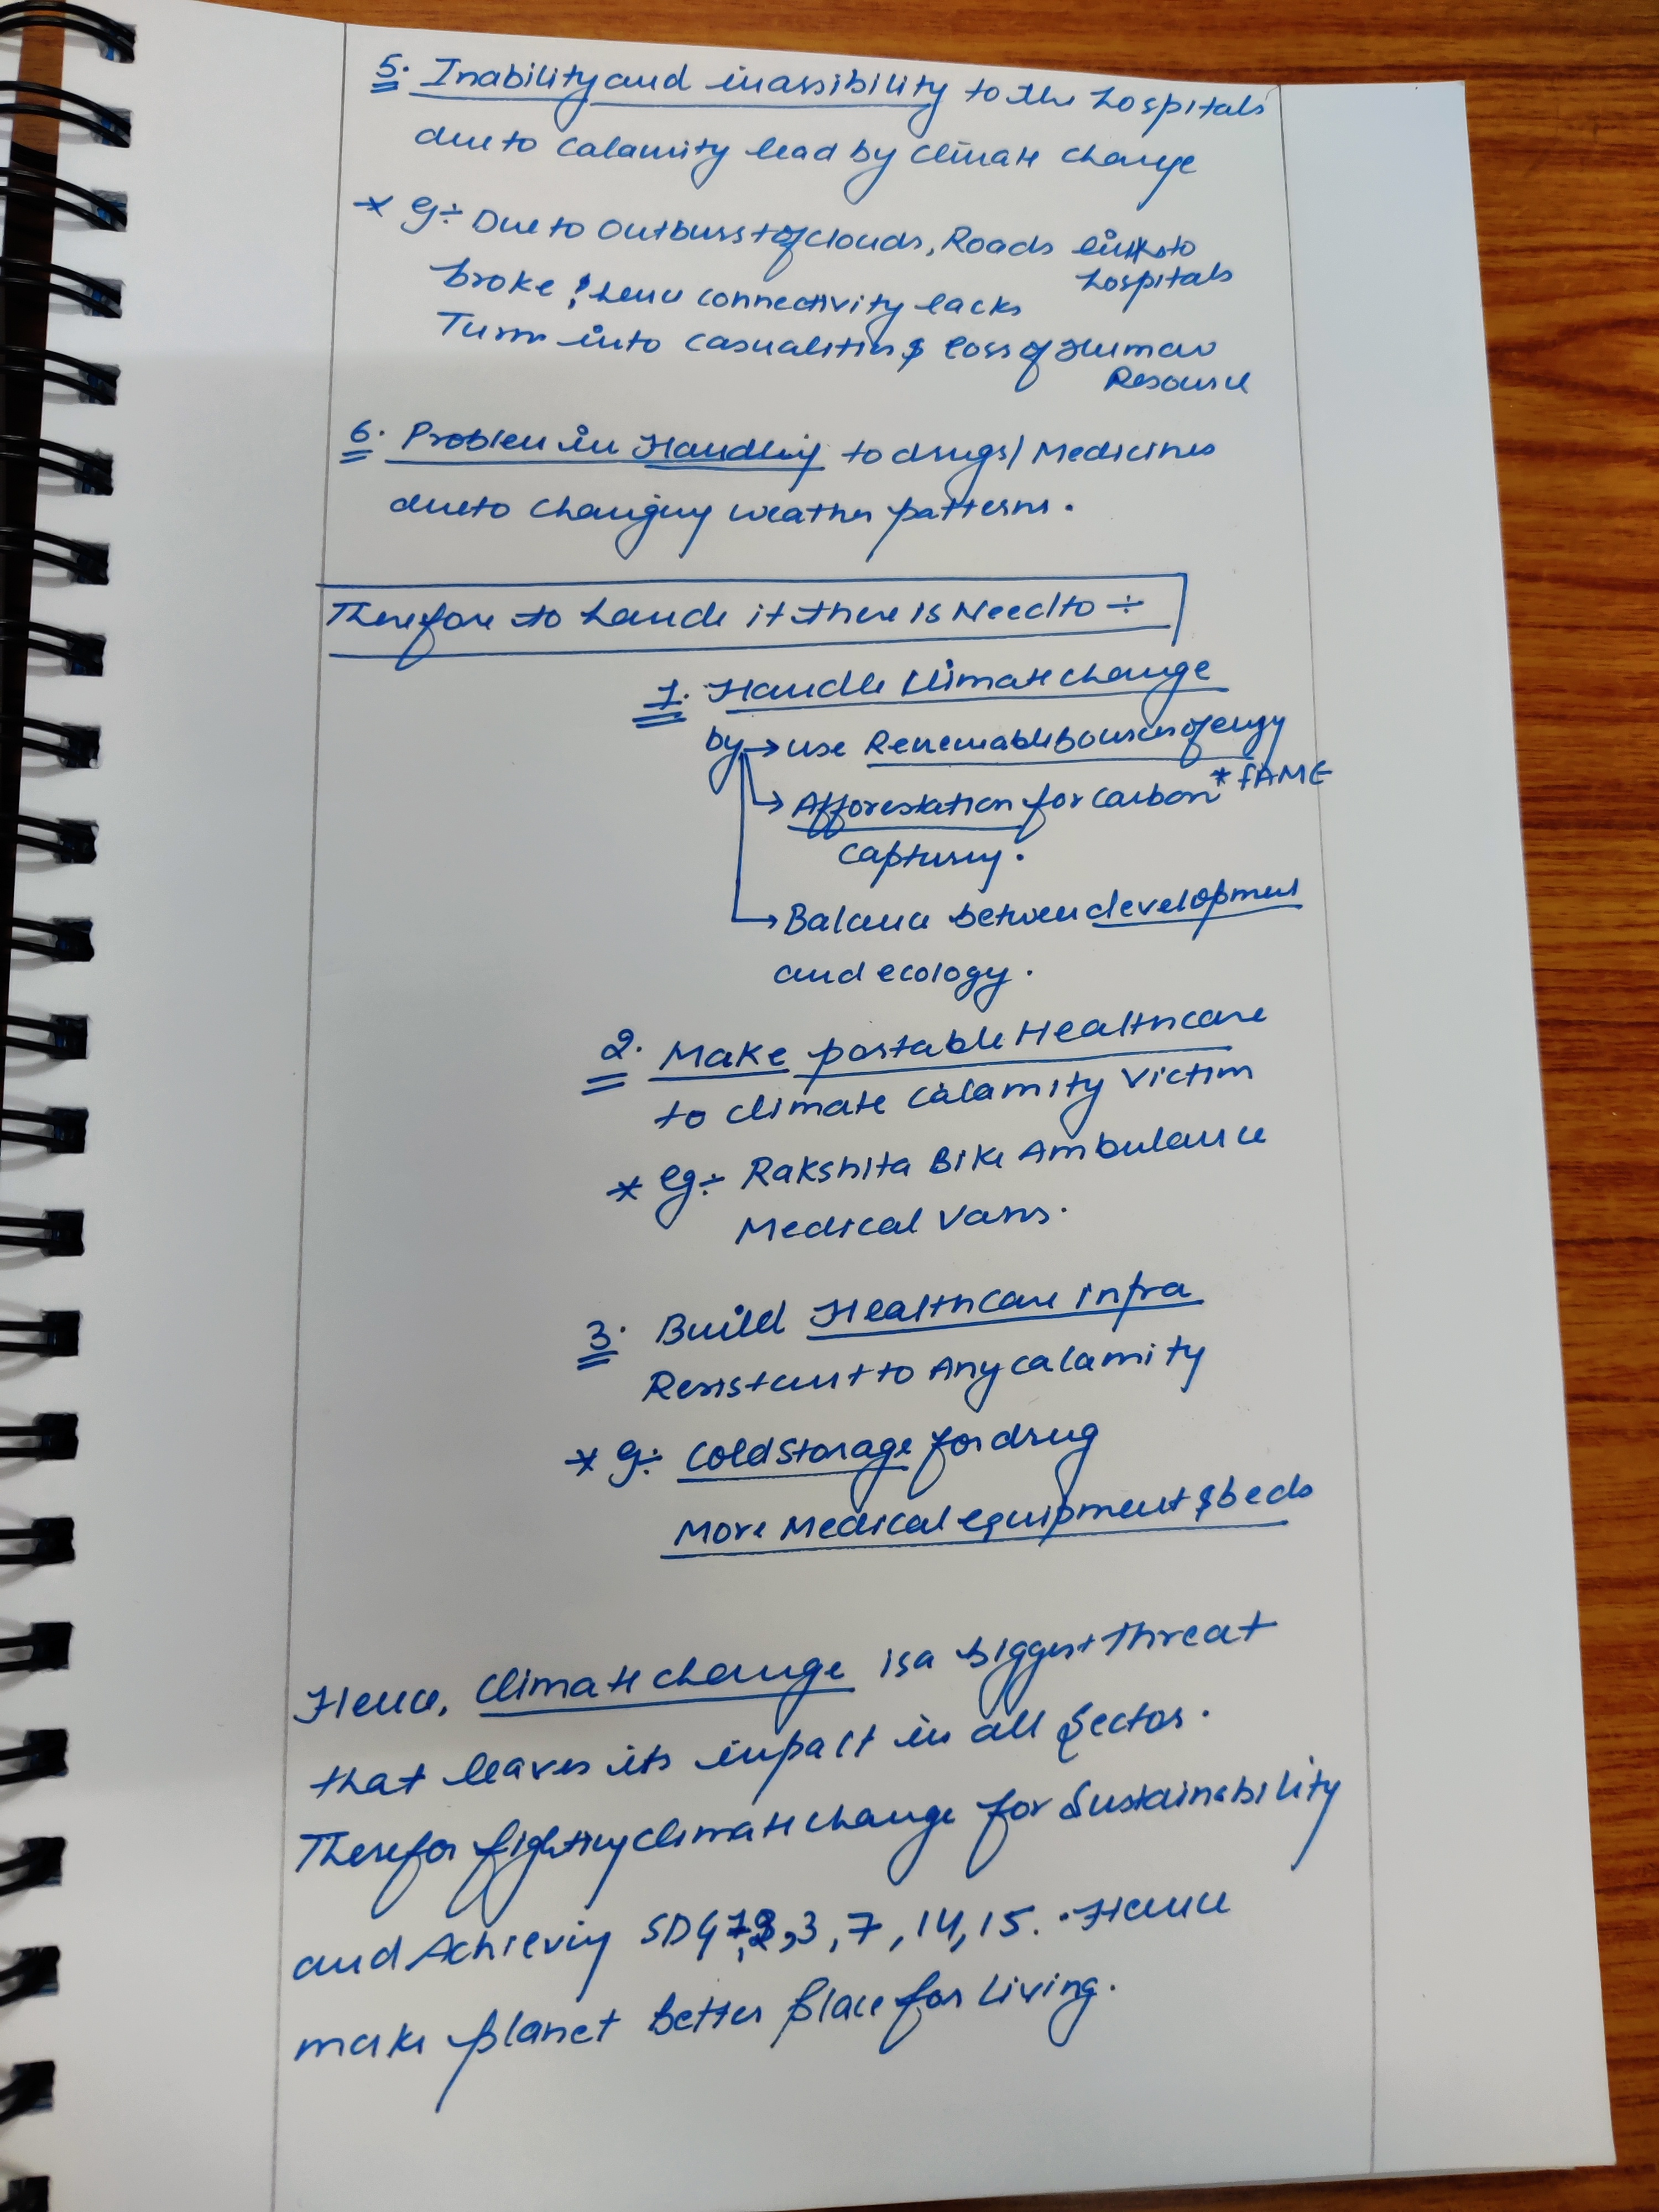 5. Inability and inassibility to the hospitals
due to calamity lead by climate change
* eg÷ Due to outburst of clouds, Roads link to
hospitals
broke & hence connectivity lacks
Turn into casualities & loss of Human
Resource
6. Problem in Handling to drugs/Medicines
due to changing weather patterns.
Therefore to handle it there is Need to ÷
1. Handle Climate change
by → use Renewable sources of energy
* FAME
→ Afforestation for carbon
capturing.
→ Balance between development
and ecology.
2. Make portable Healthcare
to climate calamity victim
* eg÷ Rakshita Bike Ambulance
Medical Vans.
3. Build Healthcare infra
Resistant to Any calamity
* eg÷ Cold storage for drug
More Medical equipment & beds
Hence, Climate change is a biggest threat
that leaves its impact in all sector.
Therefor fighting climate change for Sustainability
and Achieving SDG 1, 2, 3, 7, 14, 15. Hence
make planet better place for living.